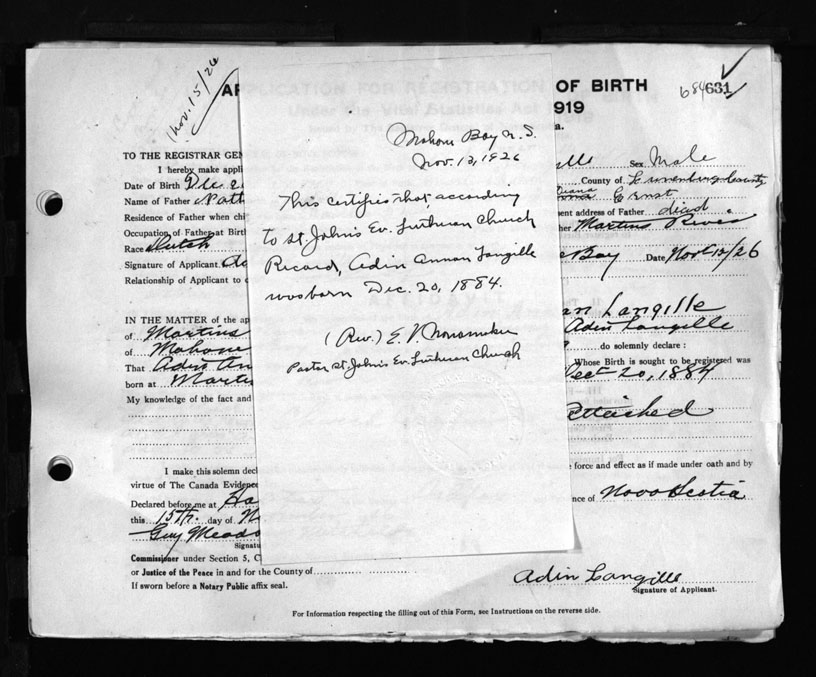 Nov. 15/26
AP
OF BIRTH
684631
1919
TO THE REGISTRAR GEN
I hereby make appli
Sex Male
Date of Birth Dec 2
County of Lunenburg County
Name of Father Nath
Ernst
Residence of Father when chi
ent address of Father dead
Occupation of Father at Birth
her Martins River
Race Dutch
Bay Date Nov 12/26
Signature of Applicant Ad
Relationship of Applicant to c
Mahone Bay N. S.
Nov. 13, 1926
This certifies that, according
to St. John's Ev. Lutheran Church
Record, Adin Annan Langille
was born Dec. 20, 1884.
(Rev.) E. V. Nonamaker
Pastor St. John's Ev. Lutheran Church
IN THE MATTER of the ap
an Langille
of Martins
Adin Langille
of Mahone
do solemnly declare :
That Adin An
Whose Birth is sought to be registered was
born at Martin
Dec 20, 1884
My knowledge of the fact and
Attached
I make this solemn decl
force and effect as if made under oath and by
virtue of The Canada Evidence
Declared before me at Ha
nce of Nova Scotia
this 15th day of N
Guy Meado
Signatu
Commissioner under Section 5, C
or Justice of the Peace in and for the County of
Adin Langille
If sworn before a Notary Public affix seal.
Signature of Applicant.
For Information respecting the filling out of this Form, see Instructions on the reverse side.